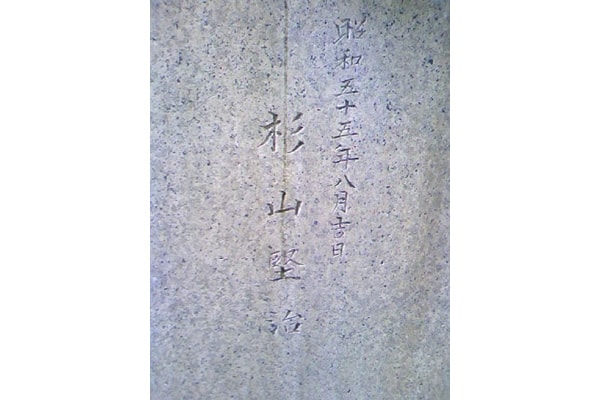 昭和五十五年八月吉日
杉山堅治